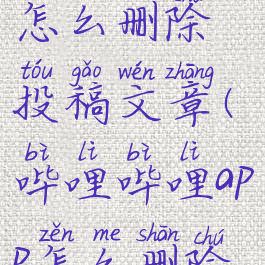 怎么删除
tóu gǎo wén zhāng
投稿文章(
bì lì bì lì
哔哩哔哩ap
zěn me shān chú
p怎么删除